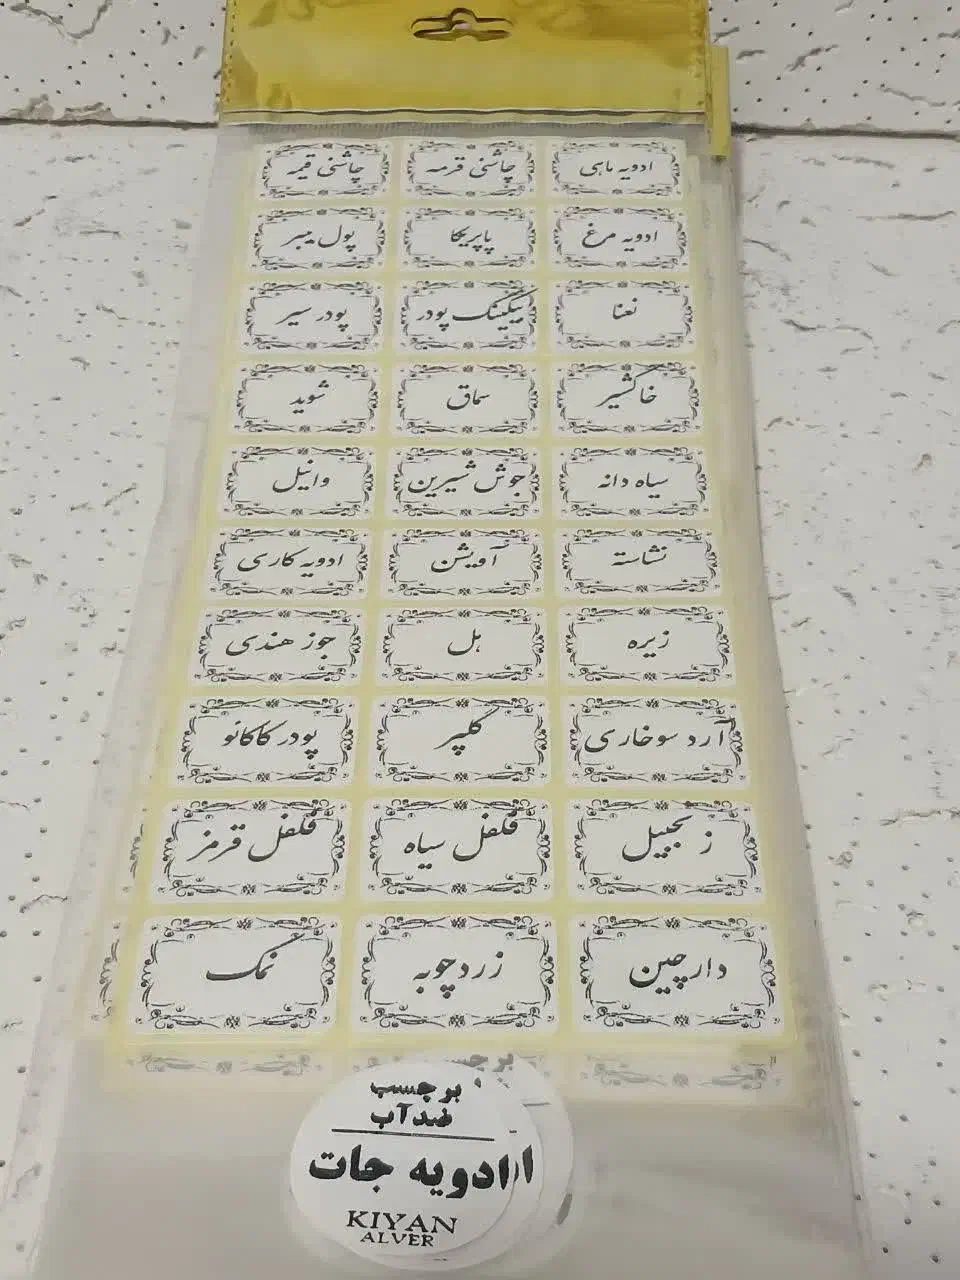 ادویه ماهی
چاشنی قرمه
چاشنی قیمه
ادویه مرغ
پاپریکا
پول بیبر
نعنا
بیکینگ پودر
پودر سیر
خاکشیر
سماق
شوید
سیاه دانه
جوش شیرین
وانیل
نشاسته
آویشن
ادویه کاری
زیره
هل
جوز هندی
آرد سوخاری
گلپر
پودر کاکائو
زنجبیل
فلفل سیاه
فلفل قرمز
دارچین
زردچوبه
نمک
برچسب
ضدآب
ادویه جات
KIYAN
ALVER